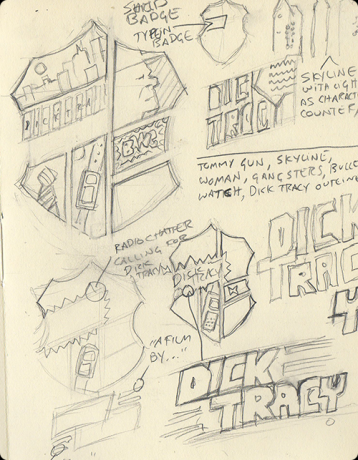 SHIELD
BADGE
TYPE IN
BADGE
SKYLINE
WITH LIGHT
AS CHARACTER
COUNTER
DICK
TRACY
TOMMY GUN, SKYLINE,
WOMAN, GANGSTERS, BULLE
WATCH, DICK TRACY OUTLINE
DICK TRA
RADIO CHATTER
CALLING FOR
DICK
TRACY
DICK
TRACY
DICK
TRACY
"A FILM
BY..."
DICK
TRACY